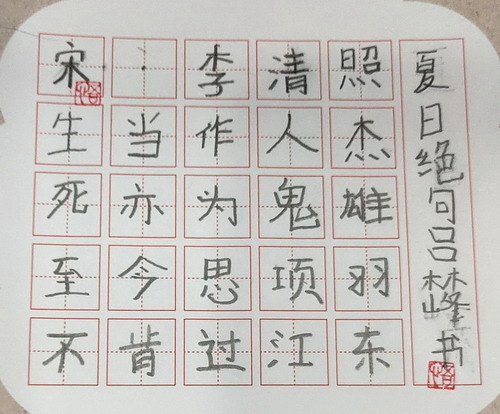 宋·李清照
生当作人杰
死亦为鬼雄
至今思项羽
不肯过江东
夏日绝句吕林峰书